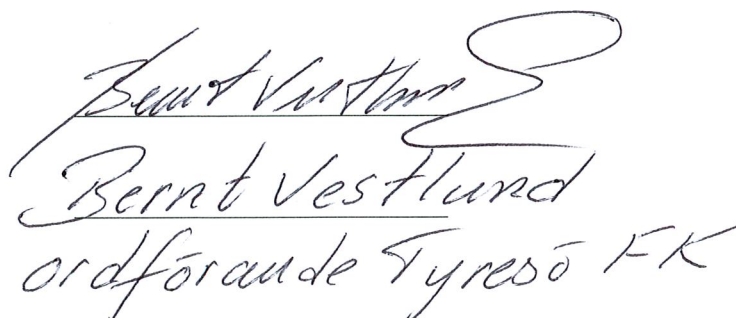 Bernt Vestlund
Bernt Vestlund
ordförande Tyresö FK